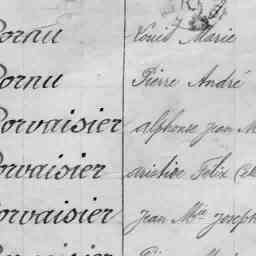 Cornu Louis Marie
Cornu Pierre André
Corvaisier Alphonse Jean M
Corvaisier Aristide Felix
Corvaisier Jean Mie Joseph